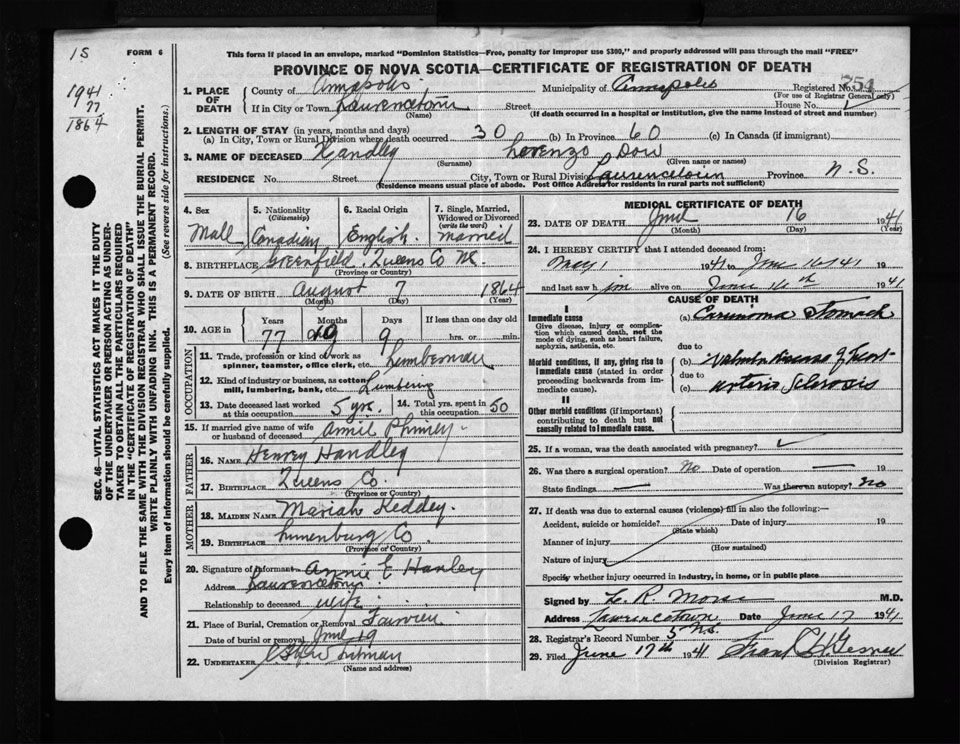 15
FORM 6
1941
77
1864
This form if placed in an envelope, marked "Dominion Statistics—Free, penalty for improper use $300," and properly addressed will pass through the mail "FREE"
PROVINCE OF NOVA SCOTIA—CERTIFICATE OF REGISTRATION OF DEATH
1. PLACE OF DEATH
County of Annapolis Municipality of Annapolis Registered No. 751
(For use of Registrar General only)
If in City or Town Lawrencetown Street House No.
(Name) (If death occurred in a hospital or institution, give the name instead of street and number)
2. LENGTH OF STAY (in years, months and days)
(a) In City, Town or Rural Division where death occurred 30 (b) In Province 60 (c) In Canada (if immigrant)
3. NAME OF DECEASED Handley Lorenzo Dow
(Surname) (Given name or names)
RESIDENCE No. Street City, Town or Rural Division Lawrencetown Province N.S.
(Residence means usual place of abode. Post Office Address for residents in rural parts not sufficient)
SEC. 46—VITAL STATISTICS ACT MAKES IT THE DUTY
OF THE UNDERTAKER OR PERSON ACTING AS UNDER-
TAKER TO OBTAIN ALL THE PARTICULARS REQUIRED
IN THE "CERTIFICATE OF REGISTRATION OF DEATH"
AND TO FILE THE SAME WITH THE DIVISION REGISTRAR WHO SHALL ISSUE THE BURIAL PERMIT.
WRITE PLAINLY WITH UNFADING INK. THIS IS A PERMANENT RECORD.
Every item of information should be carefully supplied. (See reverse side for instructions.)
4. Sex 5. Nationality (Citizenship) 6. Racial Origin 7. Single, Married, Widowed or Divorced (write the word)
Male Canadian English married
8. BIRTHPLACE Greenfield Queens Co NS.
(Province or Country)
9. DATE OF BIRTH August 7 1864
(Month) (Day) (Year)
10. AGE in Years Months Days If less than one day old
77 9 hrs. or min.
OCCUPATION
11. Trade, profession or kind of work as spinner, teamster, office clerk, etc. Lumberman
12. Kind of industry or business, as cotton mill, lumbering, bank, etc. Lumbering
13. Date deceased last worked at this occupation 5 yrs. 14. Total yrs. spent in this occupation 50
15. If married give name of wife or husband of deceased Annie Phinney
FATHER
16. NAME Henrey Handley
17. BIRTHPLACE Queens Co.
(Province or Country)
MOTHER
18. MAIDEN NAME Mariah Keddey.
19. BIRTHPLACE Lunenburg Co
(Province or Country)
20. Signature of Informant Annie E Hanley
Address Lawrencetown
Relationship to deceased wife
21. Place of Burial, Cremation or Removal Fairview
Date of burial or removal June 19
22. UNDERTAKER
(Name and address)
MEDICAL CERTIFICATE OF DEATH
23. DATE OF DEATH June 16 1941
(Month) (Day) (Year)
24. I HEREBY CERTIFY that I attended deceased from:
May 1 1941 to June 16 1941 19
and last saw him alive on June 16th 1941
CAUSE OF DEATH
I
Immediate cause
Give disease, injury or complication which caused death, not the mode of dying, such as heart failure, asphyxia, asthenia, etc.
(a) Carcinoma Stomach
due to
Morbid conditions, if any, giving rise to Immediate cause (stated in order proceeding backwards from immediate cause).
(b) Valvular disease of Heart
due to
(c) Arterio Sclerosis
II
Other morbid conditions (if important) contributing to death but not causally related to Immediate cause.
25. If a woman, was the death associated with pregnancy?
26. Was there a surgical operation? No Date of operation — 19
State findings — Was there an autopsy? No
27. If death was due to external causes (violence) fill in also the following:—
Accident, suicide or homicide? Date of injury 19
(State which)
Manner of injury
(How sustained)
Nature of injury
Specify whether injury occurred in industry, in home, or in public place
Signed by L. R. Morse M.D.
Address Lawrencetown Date June 17 1941
N.S.
28. Registrar's Record Number 5
29. Filed June 17th 1941 Frank
(Division Registrar)